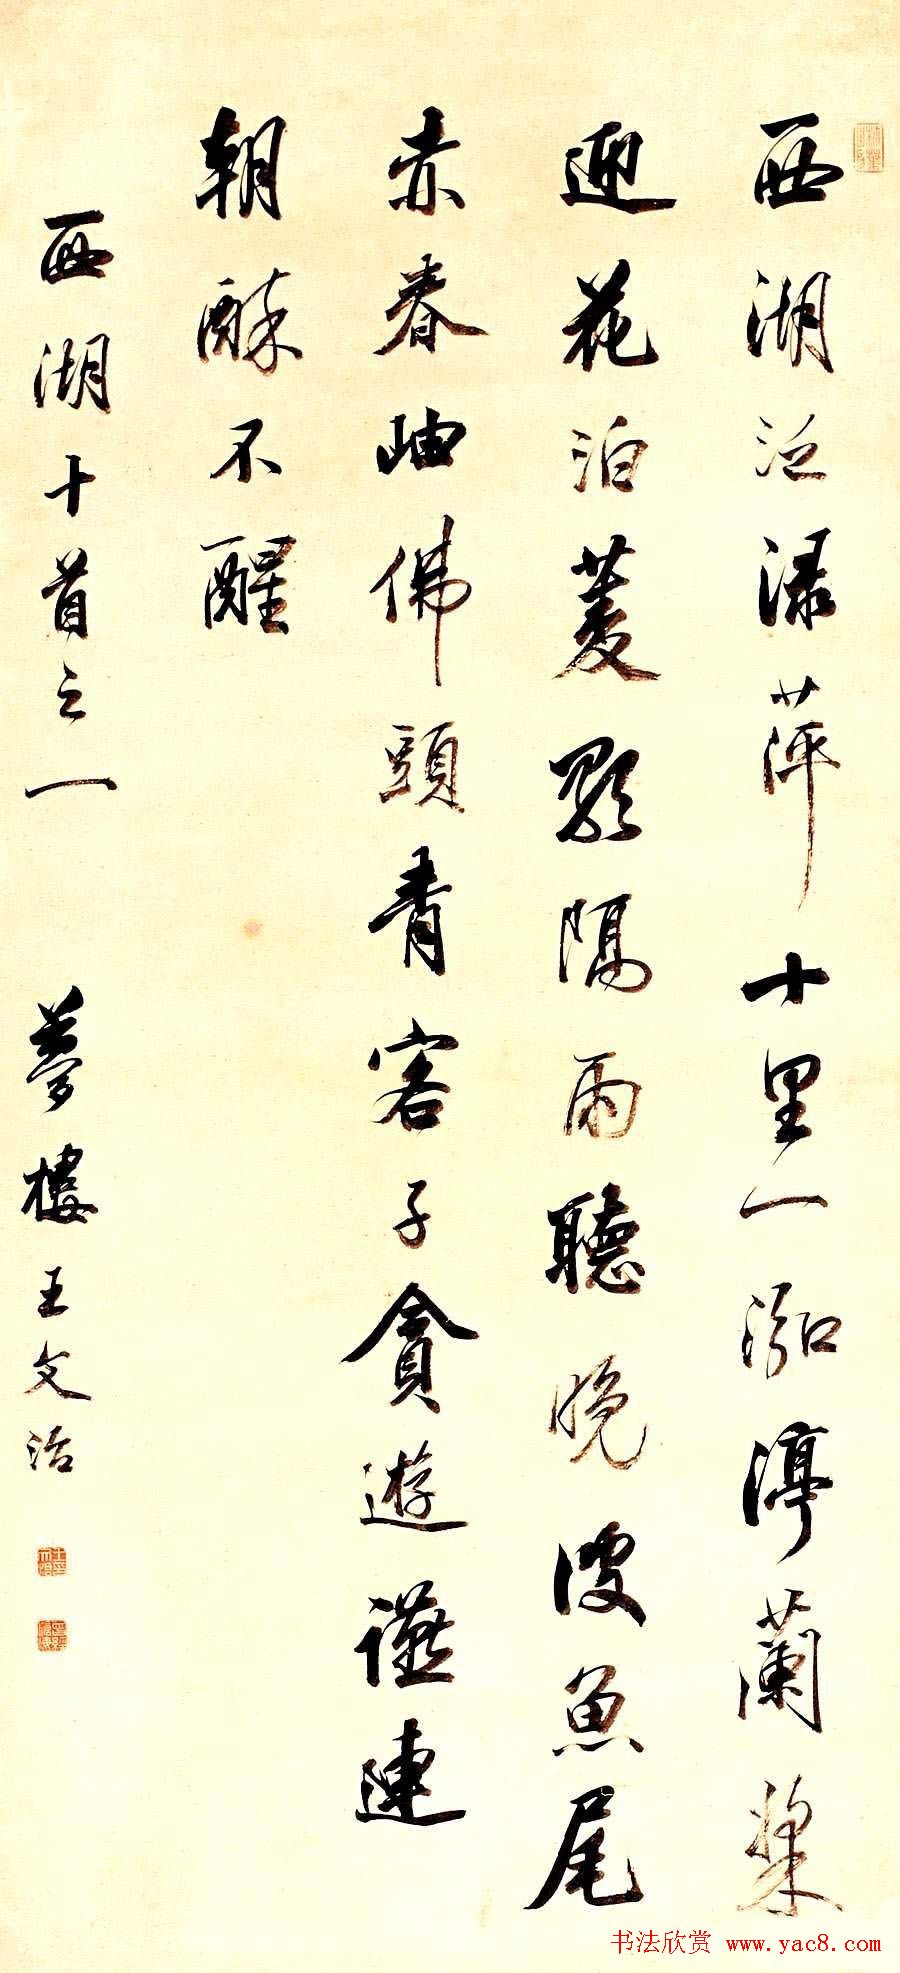 西湖泛漾萍十里一泓渟蘭槳
迎花泊菱歌隔雨聽晚波魚尾
赤春岫佛頭青客子貪遊讌連
朝酥不醒
西湖十首之一
夢樓王文治
书法欣赏 www.yac8.com